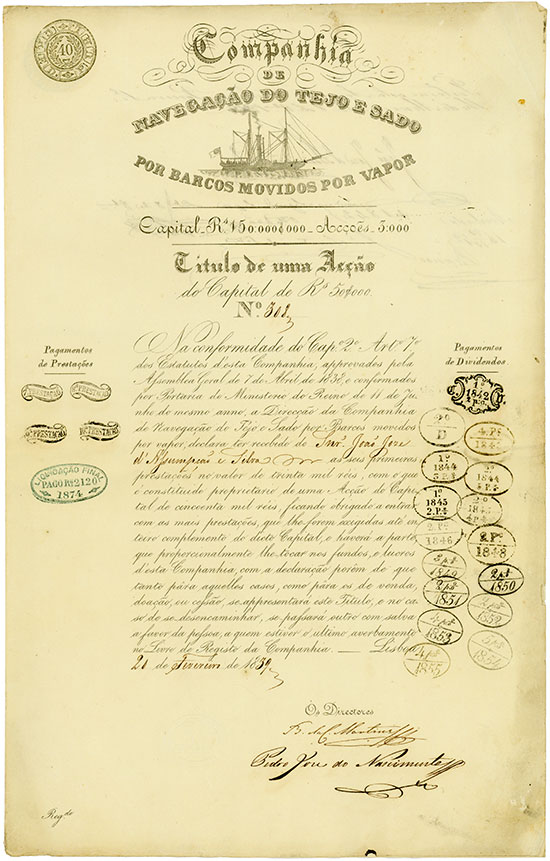 40
Companhia
DE
NAVEGAÇÃO DO TEJO E SADO
POR BARCOS MOVIDOS POR VAPOR
Capital R.s 150:000$000 Acções 3:000
Titulo de uma Acção
do Capital de R.s 50$000.
N.o 308
Pagamentos
de Prestações
PRESTAÇÃO
PRESTAÇÃO
PRESTAÇÃO
PRESTAÇÃO
LIQUIDAÇÃO FINAL
PAGO Rs 2120
1874
Na conformidade do Cap.o 2.o Art.o 7.o
dos Estatutos d'esta Companhia, approvados pela
Assemblea Geral de 7 de Abril de 1838, e confirmados
por Portaria do Ministerio do Reino de 11 de Ju-
nho do mesmo anno, a Direcção da Companhia
de Navegação do Tejo e Sado por Barcos movidos
por vapor, declara ter recebido de Snr. João Jose
d'Assumpção e Silva as seis primeiras
prestações no valor de trinta mil réis, com o que
é constituido proprietario de uma Acção de Capi-
tal de cincoenta mil réis, ficando obrigado a entrar
com as mais prestações, que lhe forem exigidas até in-
teiro complemento do dicto Capital, e haverá a parte,
que proporcionalmente lhe tocar nos fundos, e lucros
d'esta Companhia, com a declaração porém de que
tanto pára aquelles casos, como pára os de vonda,
doação, ou cessão, se appresentará este Titulo, e no ca-
so de se desencaminhar, se passará outro com salva
a favor da pessoa, a quem estiver o ultimo averbamento
no Livro do Registo da Companhia. — Lisboa
21 de Fevereiro de 1839
Pagamentos
de Dividendos
1.o
1842
2.o
D
4.P.t
1.o
1844
3 P.t
2.o
1844
1.o
1845
2.P.t
2.o
4.P.t
2.P.t
1846
2.P.t
1848
3 p.t
1849
2 p.t
1850
2 p.t
1851
4 p.t
1852
4 p.t
1853
5 p.t
1854
4 p.t
1855
Os Directores
F. da C. Martins
Pedro Jose do Nascimento
Reg.do